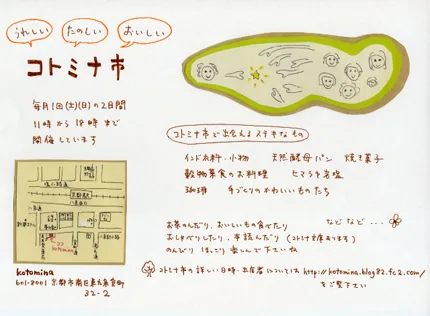 うれしい
たのしい
おいしい
コトミナ市
毎月1回(土)(日)の2日間
11時から18時まで
開催しています
コトミナ市で出会えるステキなもの
インド衣料・小物 天然酵母パン 焼き菓子
穀物菜食のお料理 ヒマラヤ岩塩
珈琲 手づくりのかわいいものたち
などなど...
お茶のんだり、おいしいもの食べたり
おしゃべりしたり、本読んだり(コトミナ文庫あります)
のんびり ほっこり 楽しんで下さいね
kotomina
601-8001 京都市南区東九条室町
32-2
コトミナ市の詳しい日時・出店者については http://kotomina.blog82.fc2.com/
をご覧下さい